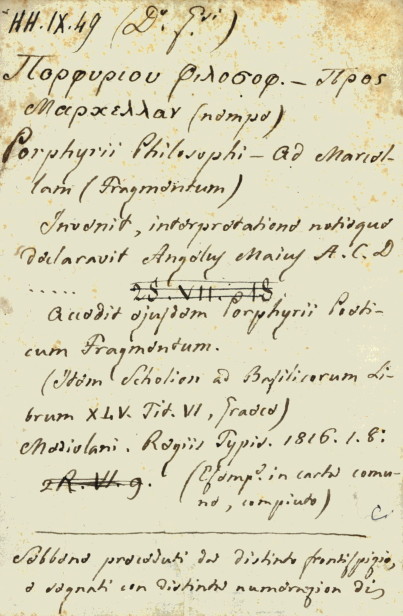 HH.IX.49 (Dr. Gri)
Πορφυριου Φιλοσοφ. — Προς
Μαρκελλαν (nempe)
Porphyrii Philosophi — ad Marcel-
lam (Fragmentum)
Invenit, interpretatione notisque
declaravit Angelus Maius A. C. D
.....
2S. VII. 18
Accedit ejusdem Porphyrii Poeti-
cum Fragmentum.
(Item Scholion ad Basilicorum Li-
brum XLV. Tit. VI, Graece)
Mediolani. Regiis Typis. 1816. 1. 8:
2R. VI. 9. (Esempe. in carta comu-
ne, compiuto)
C
Sebbene preceduti da distinto frontispizio,
e segnati con distinta numerazion di